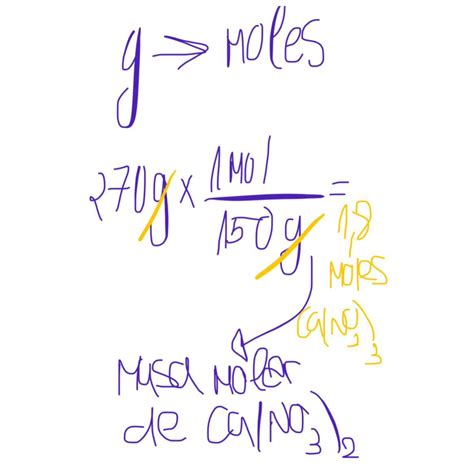 g → MOLES
270g x 1 MOl / 150 g =
1,8
MOles
Ca(NO3)3
MASA MOlAR
de Ca(NO3)2